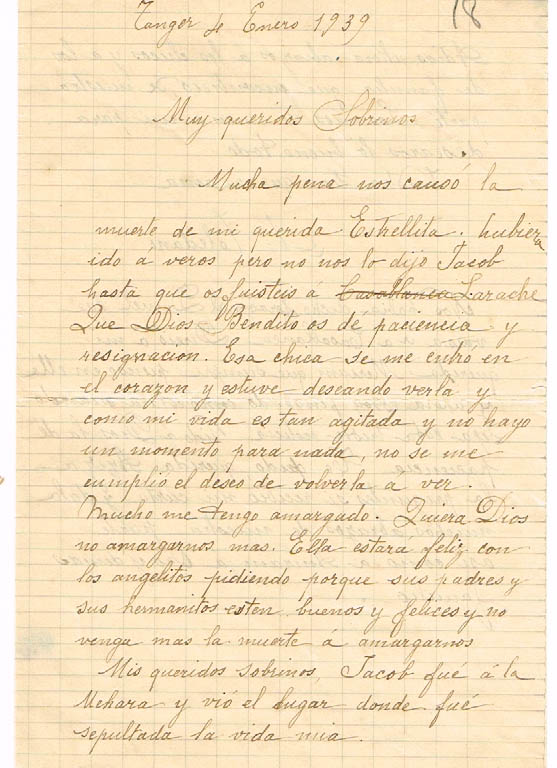 18
Tanger 4 Enero 1939
Muy queridos Sobrinos
Mucha pena nos causó la
muerte de mi querida Estrellita. hubiera
ido a veros pero no nos lo dijo Jacob
hasta que os fuisteis á Casablanca Larache
Que Dios Bendito os de paciencia y
resignacion. Esa chica se me entro en
el corazon y estuve deseando verla y
como mi vida es tan agitada y no hayo
un momento para nada, no se me
cumplió el deseo de volverla a ver.
Mucho me tengo amargado. Quiera Dios
no amargarnos mas. Ella estará feliz con
los angelitos pidiendo porque sus padres y
sus hermanitos esten buenos y felices y no
venga mas la muerte á amargarnos
Mis queridos sobrinos, Jacob fué á la
Mehara y vió el lugar donde fué
sepultada la vida mia.